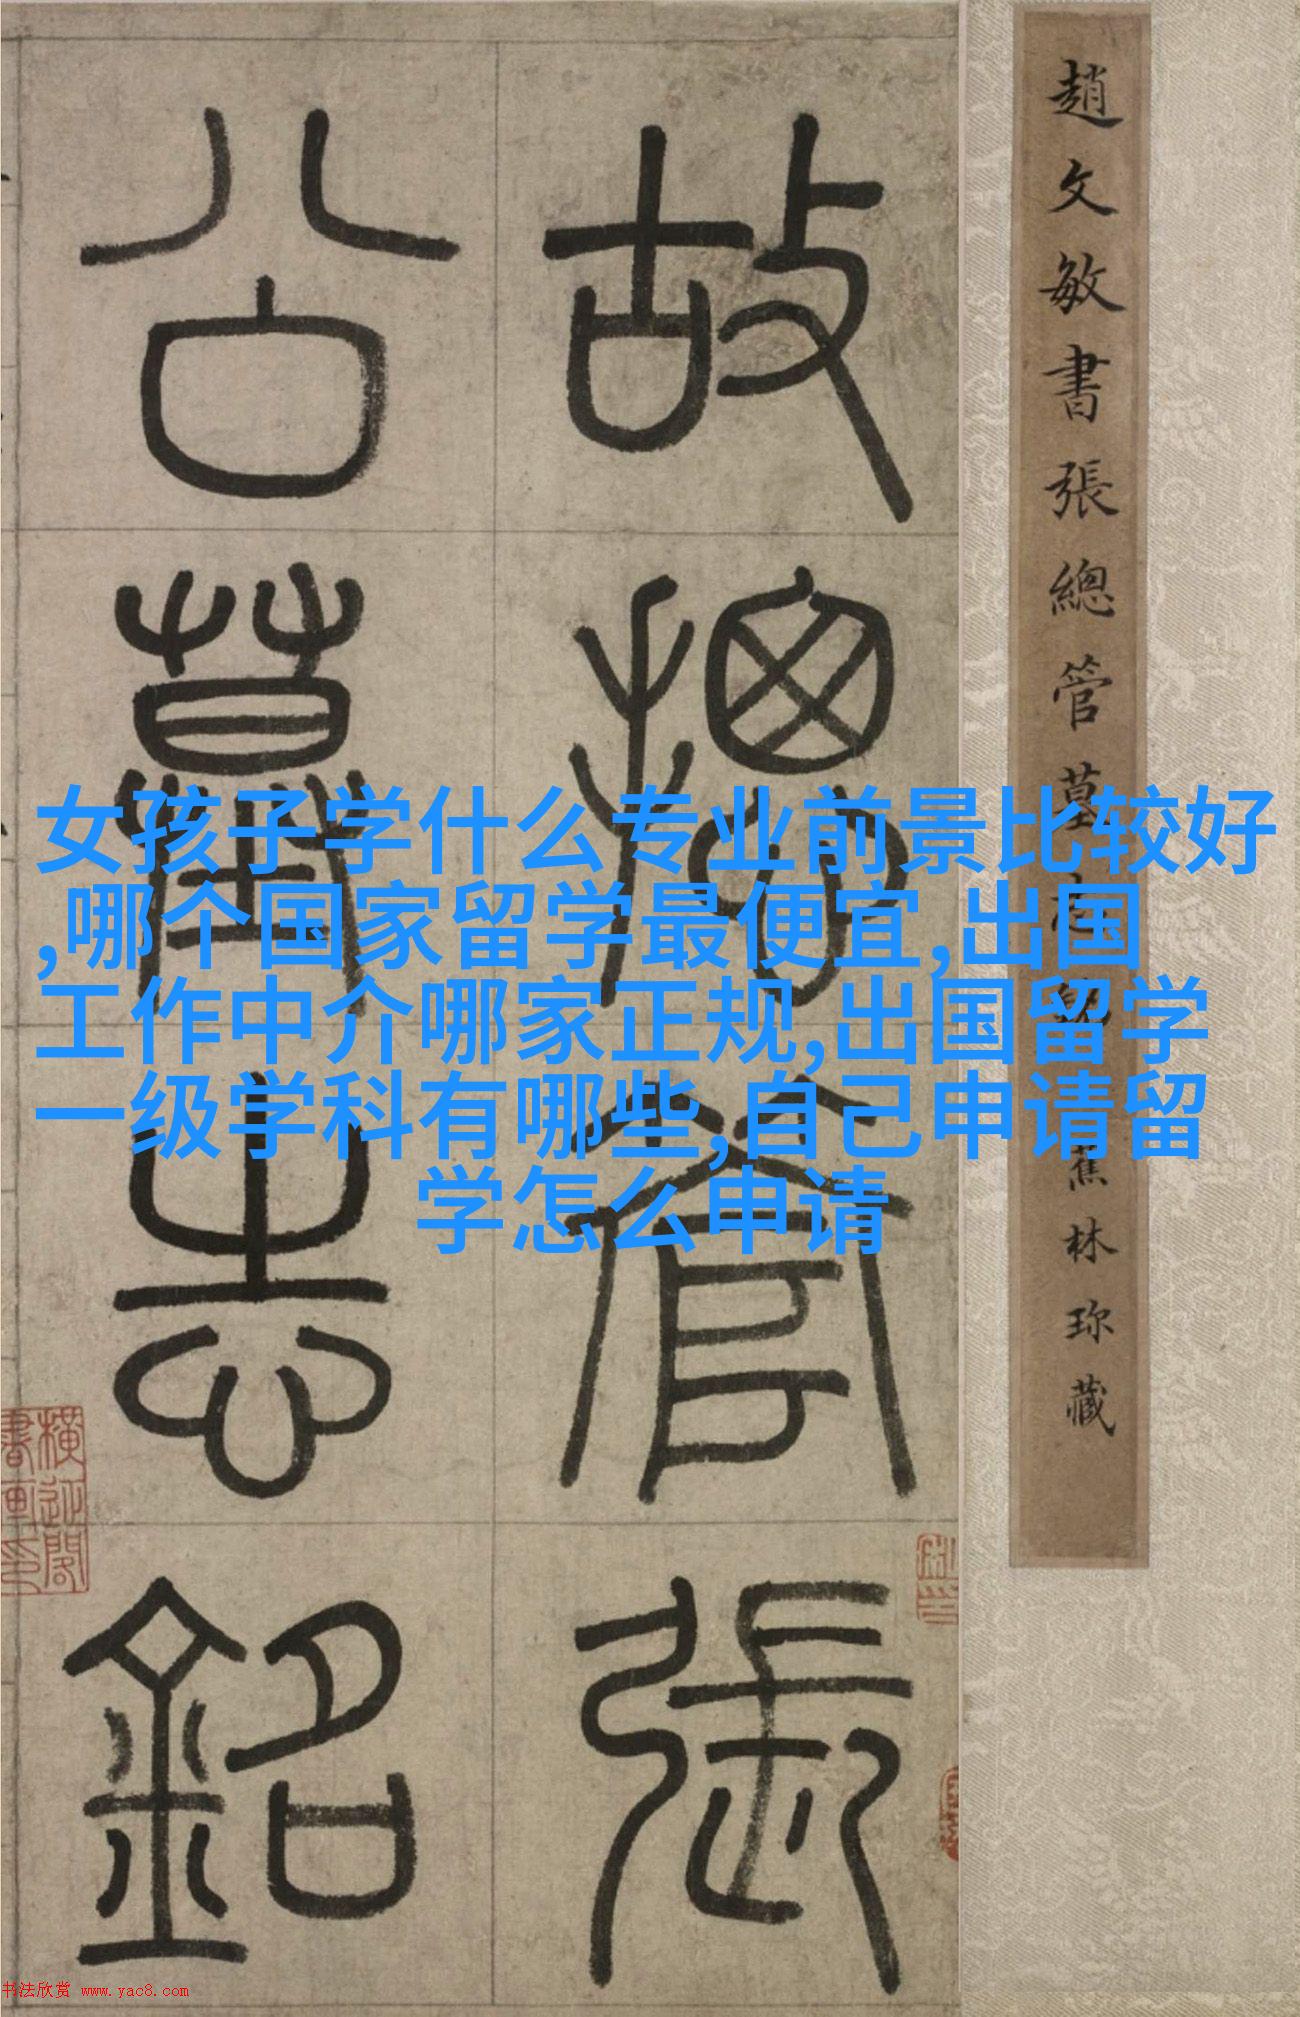 趙文敏書張總管墓志
蕉林珍藏
故揔管張
公墓志銘
女孩子学什么专业前景比较好
,哪个国家留学最便宜,出国
工作中介哪家正规,出国留学
一级学科有哪些,自己申请留
学怎么申请
书法欣赏 www.yac8.com